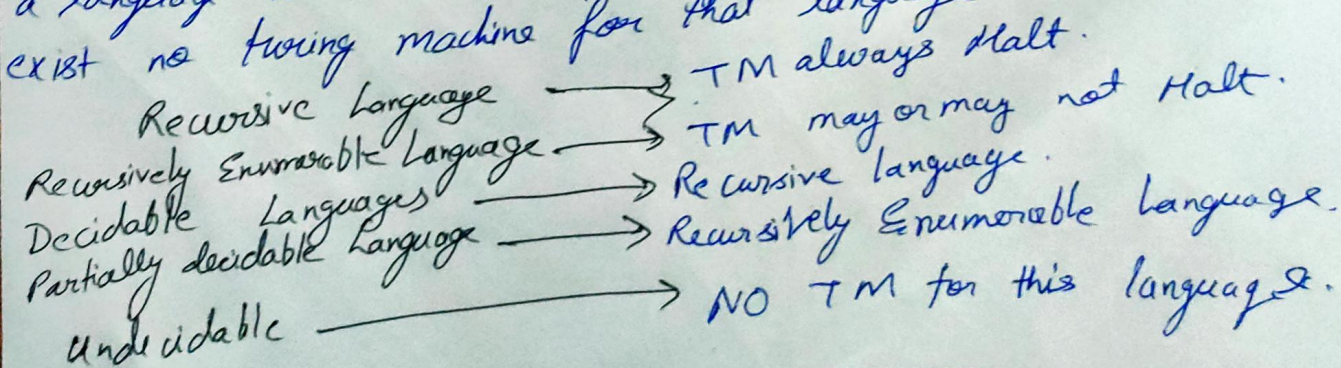 a language that language
exist no turing machine for that
Recursive Language → TM always Halt.
Recursively Enumerable Language. → TM may or may not Halt.
Decidable Languages → Recursive language.
Partially decidable Language → Recursively Enumerable Language.
Undecidable → NO TM for this language.